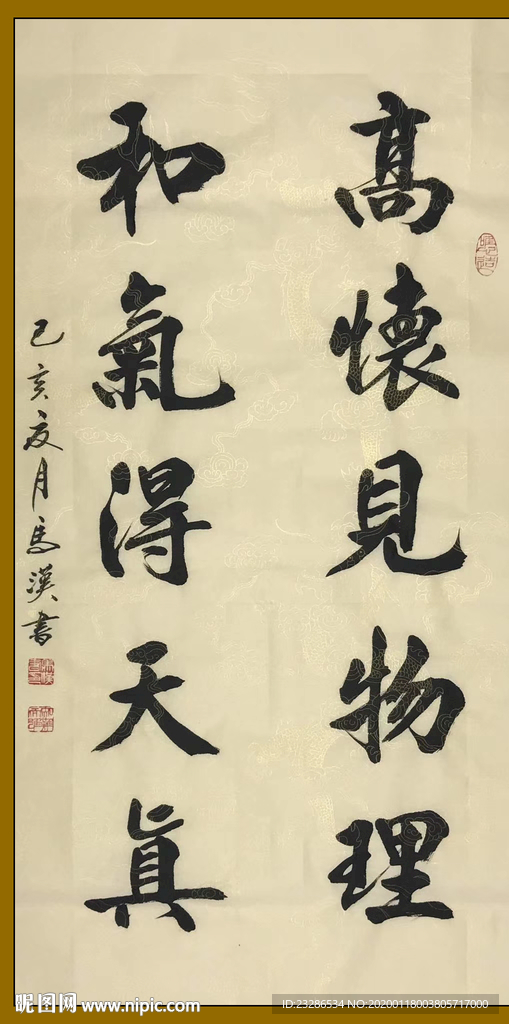 高懷見物理
和氣得天真
己亥夏月馬漢書
昵图网 www.nipic.com
ID:23286534 NO:20200118003805717000